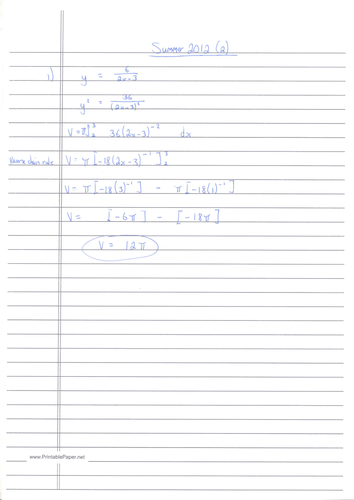 Summer 2012 (2)
1) y = 6/(2x-3)
y² = 36/(2x-3)²
V = π∫₂³ 36(2x-3)⁻² dx
Reverse chain rule V = π[-18(2x-3)⁻¹]₂³
V = π[-18(3)⁻¹] - π[-18(1)⁻¹]
V = [-6π] - [-18π]
V = 12π
www.PrintablePaper.net